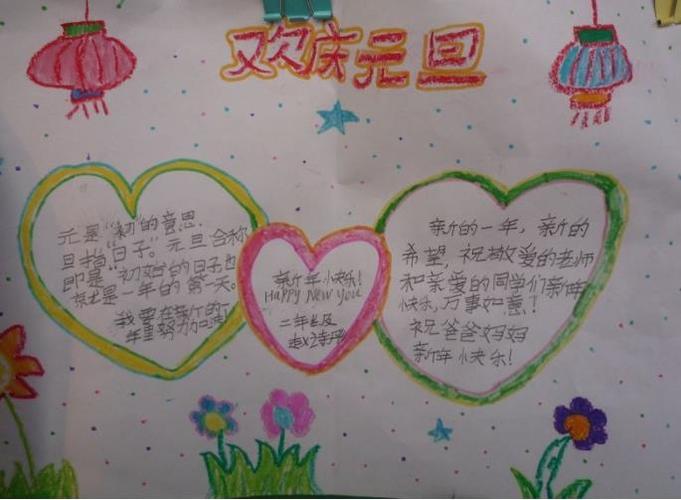 欢庆元旦
元是“初”的意思,
旦指“日子”。元旦合称
即是“初始的日子也
就是一年的第一天。
我要在新的一
年里努力加油!
新年小快乐!
HAPPY New you
二年级
新的一年,新的
希望,祝敬爱的老师
和亲爱的同学们新年
快乐,万事如意!
祝爸爸妈妈
新年小快乐!